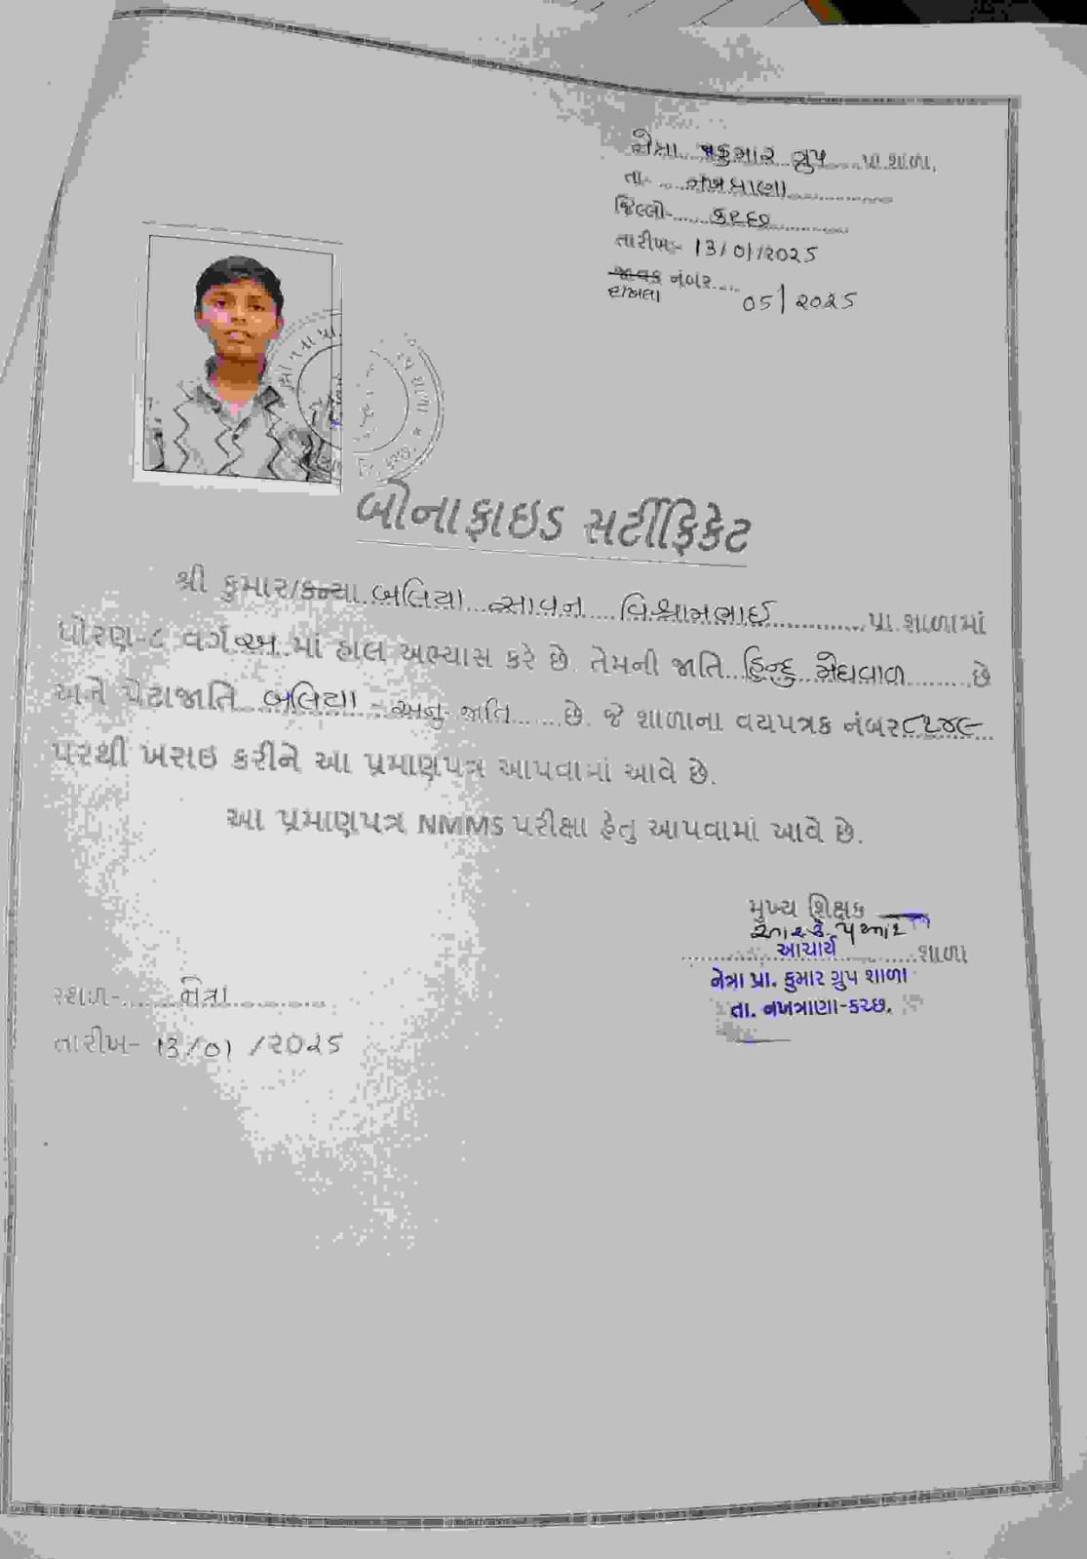 નેત્રા કુમાર ગ્રુપ પ્રા.શાળા,
તા- નખત્રાણા
જિલ્લો- કચ્છ
તારીખ:- 13/01/2025
જાવક નંબર....
દાખલા 05/2025
બોનાફાઇડ સર્ટીફિકેટ
શ્રી કુમાર/કન્યા બલિયા સાવન વિશ્રામભાઈ પ્રા.શાળામાં
ધોરણ-૮ વર્ગ અ માં હાલ અભ્યાસ કરે છે. તેમની જાતિ હિન્દુ મેઘવાળ છે
અને પેટાજાતિ બલિયા - અનુ. જાતિ છે. જે શાળાના વયપત્રક નંબર
પરથી ખરાઇ કરીને આ પ્રમાણપત્ર આપવામાં આવે છે.
આ પ્રમાણપત્ર NMMS પરીક્ષા હેતુ આપવામાં આવે છે.
મુખ્ય શિક્ષક
આર.કે.પમાર
આચાર્ય શાળા
નેત્રા પ્રા. કુમાર ગ્રુપ શાળા
તા. નખત્રાણા-કચ્છ.
સ્થળ- નેત્રા
તારીખ- 13/01/2025